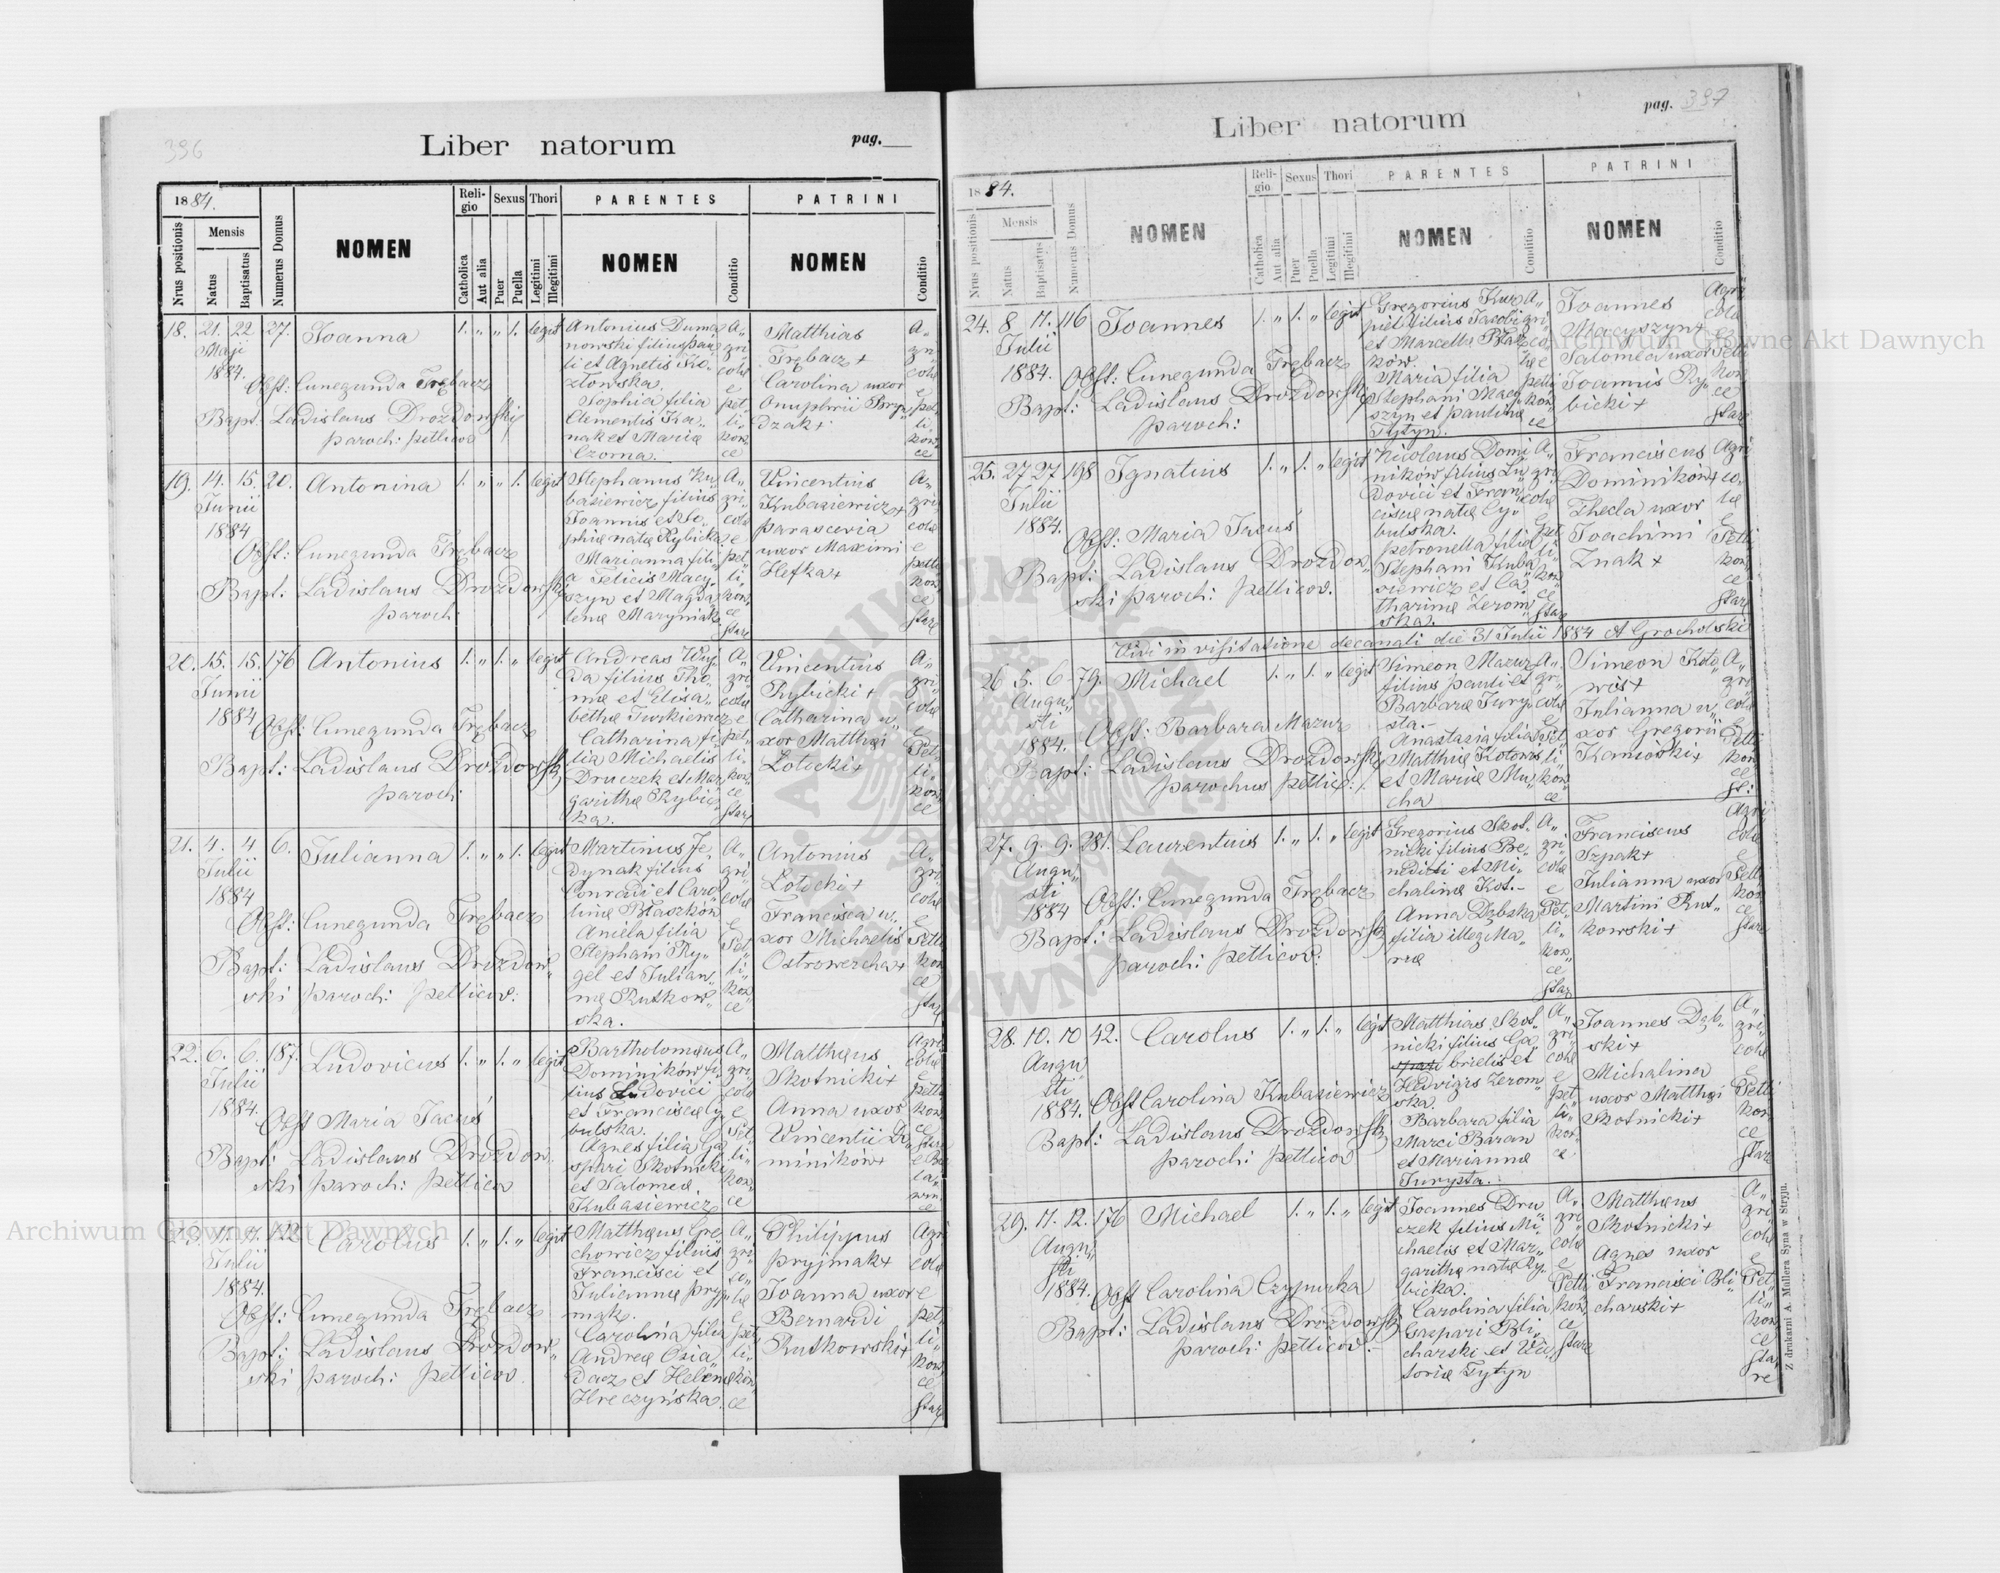 396
Liber natorum
pag.
1884.
Nrus positionis
Mensis
Natus
Baptisatus
Numerus Domus
NOMEN
Religio
Catholica
Aut alia
Sexus
Puer
Puella
Thori
Legitimi
Illegitimi
PARENTES
NOMEN
Conditio
PATRINI
NOMEN
Conditio
18. 21. 22. 27. Joanna 1. „ „ 1. legit
Maji
1884.
Obst: Cunegunda Trębacz
Bapt. Ladislaus Drozdowski
paroch: petlicov
Antonius Duma
nowski filius Pau
li et Agnetis Ko
zlowska.
Sophia filia
Clementis Ka„
nak et Mariæ
Czorna.
A„
gri
colæ
e
pet
li„
kow
ce
Matthias
Trębacz +
Carolina uxor
Onuphrii Bryn
dzak +
A„
gri
colæ
e
pet
li„
kow
ce
19. 14. 15. 20. Antonina 1. „ „ 1. legit
Junii
1884
Obst: Cunegunda Trębacz
Bapt: Ladislaus Drozdowski
paroch:
Stephanus Ku
basiewicz filius
Joannis et So„
phiæ natæ Rybicka
Marianna fili„
a Felicis Macy„
szyn et Magda
lenæ Maryniak
A„
gri
colæ
e
pet„
li„
kow
ce
stare
Vincentius
Kubasiewicz +
Parascevia
uxor Maximi
Hefka +
A„
gri
colæ
e
petli
kow
ce
stare
20. 15. 15. 176 Antonius 1. „ 1. „ legit
Junii
1884
Obst: Cunegunda Trębacz
Bapt: Ladislaus Drozdowski
paroch:
Andreas Wuj„
da filius Tho„
mæ et Elisa„
bethæ Turkiewicz
Catharina fi„
lia Michaelis
Druczek et Mar
garithæ Rybic
ka.
A„
gri„
colæ
e
pet„
li„
kow„
ce
stare
Vincentius
Rybicki +
Catharina u„
xor Matthæi
Lotocki +
A„
gri„
colæ
e
Pet„
li„
kow
ce
21. 4. 4 6. Julianna 1. „ „ 1. legit
Julii
1884
Obst: Cunegunda Trębacz
Bapt: Ladislaus Drozdow„
ski paroch: petlicov:
Martinus Je„
dynak filius
Conradi et Caro
linæ Błaszków
Aniela filia
Stephani Ry„
gel et Julian„
næ Rutkow„
ska.
A„
gri
colæ
e
Pet
li„
kow„
ce
Antonius
Lotocki +
Francisca u„
xor Michaelis
Ostrowercha +
A„
gri„
colæ
e
Petli
kow
ce
stare
22. 6. 6. 187. Ludovicus 1. „ 1. „ legit
Julii
1884.
Obst Maria Jacuś
Bapt: Ladislaus Drozdow„
ski paroch: petlicov
Bartholomæus
Dominików fi„
lius Ludovici
et Franciscæ Cy
bulska.
Agnes filia Ga
spari Skotnicki
et Salomeæ
Kubasiewicz
A„
gri
colæ
e
Pet
li„
kow„
ce
Matthæus
Skotnicki +
Anna uxor
Vincentii Do„
miników +
Agri
colæ
e
petli
kow
ce
stare
23. 7. 7. 122 Carolus 1. „ 1. „ legit
Julii
1884.
Obst: Cunegunda Trębacz
Bapt: Ladislaus Drozdow„
ski paroch: petlicov
Matthæus Gre„
chowicz filius
Francisci et
Juliannæ Pryj
mak.
Carolina filia
Andreæ Osia„
dacz et Helenæ
Hreczyńska.
A„
gri„
co„
læ
e
pet
li„
kow„
ce
Philippus
Pryjmak +
Joanna uxor
Bernardi
Rutkowski +
Agri
colæ
e
pet„
li„
kow
ce
stare
pag. 397
Liber natorum
1884.
Nrus positionis
Mensis
Natus
Baptisatus
Numerus Domus
NOMEN
Religio
Catholica
Aut alia
Sexus
Puer
Puella
Thori
Legitimi
Illegitimi
PARENTES
NOMEN
Conditio
PATRINI
NOMEN
Conditio
24. 8. 11. 116 Joannes 1. „ 1. „ legit
Julii
1884.
Obst: Cunegunda Trębacz
Bapt: Ladislaus Drozdowski
paroch:
Gregorius Kur
piel filius Jacobi
et Marcella Błasz
ków.
Maria filia
Stephani Macy
szyn et Paulinæ
Tytyn.
A„
gri
co
læ e
petli
kow
ce
Joannes
Macyszyn +
Salomea uxor
Joannis Ry„
bicki +
Agri
colæ
e
Petli
kow
ce
stare
25. 27 27 198 Ignatius 1. „ 1. „ legit
Julii
1884.
Obst: Maria Jacuś
Bapt: Ladislaus Drozdow„
ski paroch: petlicov.
Nicolaus Domi
ników filius Lu
dovici et Fran„
ciscæ natæ Cy„
bulska.
Petronella filia
Stephani Kuba
siewicz et Ca„
tharinæ Zerom„
ska.
A„
gri„
colæ
e
Pet
li„
kow„
ce
stare
Franciscus
Dominików +
Thecla uxor
Joachimi
Znak +
Agri
co„
læ
e
Petli
kow
ce
stare
Vidi in visitatione decanali die 31 Julii 1884 A Grocholski
26 5. 6. 79. Michael 1. „ 1. „ legit
Augu„
sti
1884.
Obst: Barbara Mazur
Bapt: Ladislaus Drozdowski
parochus petlic:
Simeon Mazur
filius Pauli et
Barbaræ Tury„
sta.-
Anastasia filia
Matthiæ Kotowis
et Mariæ Mu„
cha
A„
gri„
colæ
e
Pet
li„
kow„
ce
Simeon Koto„
wis +
Julianna u„
xor Gregorii
Kaniowski +
A„
gri„
colæ
e
Petli
kow
ce
st:
27. 9. 9. 281. Laurentius 1. „ 1. „ legit
Augu„
sti
1884
Obst: Cunegunda Trębacz
Bapt: Ladislaus Drozdowski
paroch: petlicov.
Gregorius Skot„
nicki filius Be„
nedicti et Mi„
chalinæ Kot.-
Anna Dębska
filia illeg Ma„
riæ
A„
gri„
colæ
e
Pet„
li„
kow„
ce
stare
Franciscus
Szpak +
Julianna uxor
Martini Rut„
kowski +
Agri
colæ
e
Petli
kow
ce
stare
28. 10. 10 42. Carolus 1. „ 1. „ legit
Augu
sti
1884.
Obst Carolina Kubasiewicz
Bapt: Ladislaus Drozdowski
paroch: petlicov
Matthias Skot„
nicki filius Ga„
brielis et
Hedvigis Zerom„
ska.
Barbara filia
Marci Baran
et Mariannæ
Turysta.
A„
gri„
colæ
e
pet„
li„
kow„
ce
Joannes Dęb„
ski +
Michalina
uxor Matthæi
Skotnicki +
A„
gri„
colæ
e
Petli
kow
ce
stare
29. 11. 12. 176 Michael 1. „ 1. „ legit
Augu„
sti
1884.
Obst Carolina Czypurka
Bapt: Ladislaus Drozdowski
paroch: petlicov.-
Joannes Dru„
czek filius Mi„
chaelis et Mar„
garithæ natæ Ry„
bicka.
Carolina filia
Gaspari Bli„
charski et Vic„
toriæ Tytyn
A„
gri
colæ
e
Petli
kow
ce
stare
Matthæus
Skotnicki +
Agnes uxor
Francisci Bli„
charski +
A„
gri„
colæ
e
Pet„
li„
kow
ce
sta„
re
Z drukarni A. Mallera Syna w Stryju.
Archiwum Główne Akt Dawnych
Archiwum Główne Akt Dawnych
ARCHIWUM GŁÓWNE AKT DAWNYCH